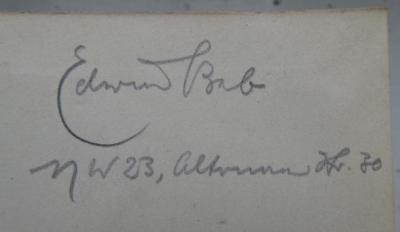 Edwin Bab
NW 23, Altonaer Str. 30